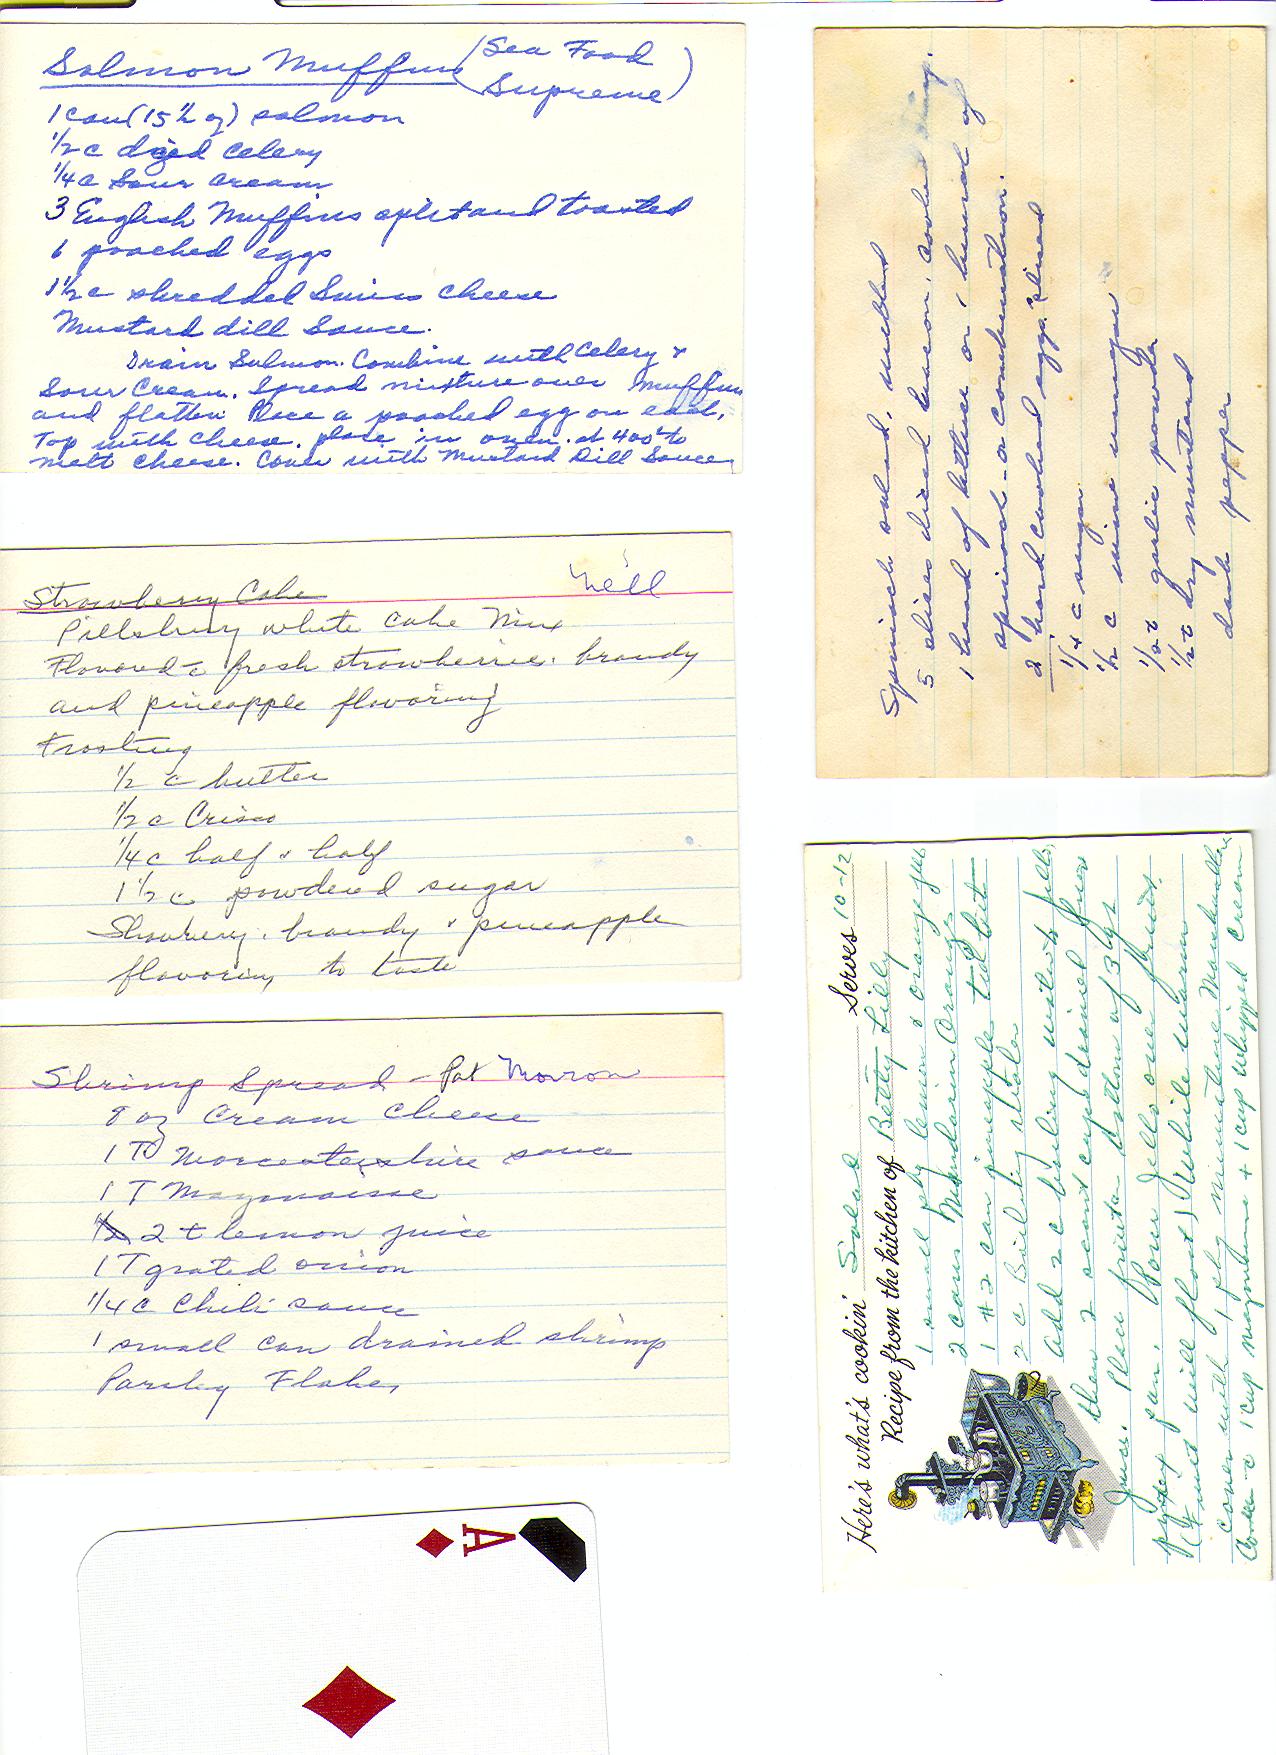 Salmon Muffins (Sea Food
Supreme)
1 can (15 1/2 oz) salmon
1/2 c diced celery
1/4 c sour cream
3 English Muffins split and toasted
6 poached eggs
1 1/2 c shredded Swiss cheese
Mustard dill Sauce.
Drain Salmon. Combine with Celery +
Sour Cream. Spread mixture over Muffins
and flatten Place a poached egg on each.
Top with cheese. place in oven at 400° to
melt cheese. Cover with Mustard Dill Sauce
Strawberry Cake Nell
Pillsbury white cake Mix
Flavored c fresh strawberries, brandy
and pineapple flavoring
Frosting
1/2 c butter
1/2 c Crisco
1/4 c half & half
1 1/2 c powdered sugar
Strawberry, brandy & pineapple
flavoring to taste
Shrimp Spread - Pat Morron
8 oz Cream Cheese
1 T Worcestershire sauce
1 T Mayonaisse
2 t lemon juice
1 T grated onion
1/4 c Chili sauce
1 small can drained shrimp
Parsley Flakes
A
Spinach salad, wilted
5 slices diced bacon, cooked crisp.
1 head of lettuce or 1 bunch of
spinach - or combination.
2 hard cooked eggs. sliced
1/4 c sugar
1/2 c wine vinegar
1/2 t garlic powder
1/2 t dry mustard
dash pepper
Here's what's cookin' Salad Serves 10-12
Recipe from the kitchen of Betty Lilly
1 small pkg lemon & orange jello
2 cans Mandarin Oranges
1 #2 can pineapple tid bits
2 c Boiling water
Add 2 c boiling water to jello,
then 2 scant cups drained fruit
juice. Place fruit on bottom of 3 lg
pyrex pan. Pour Jello over fruit.
(Fruit will float) While warm
cover with 1 pkg miniature Marshmallows
Cover c 1 cup mayonaise + 1 cup whipped cream